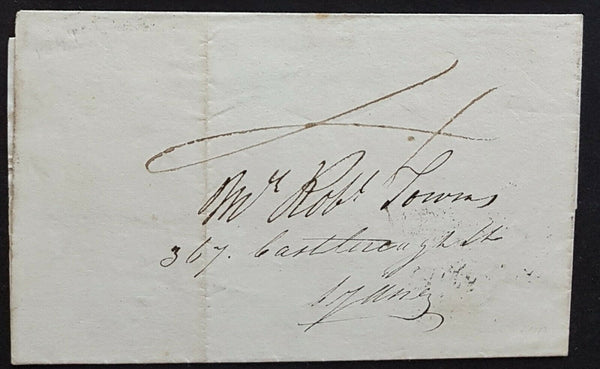 4
Mr. Robt. Towns
367. Castlereagh St
Sydney